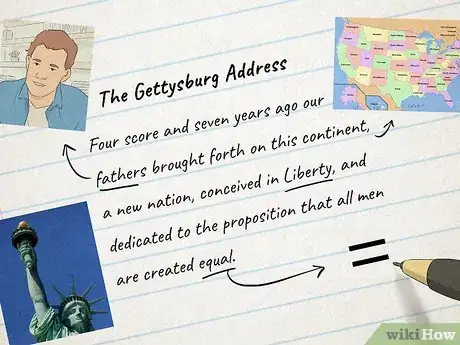 The Gettysburg Address
Four score and seven years ago our
fathers brought forth on this continent,
a new nation, conceived in Liberty, and
dedicated to the proposition that all men
are created equal.
=
wikiHow